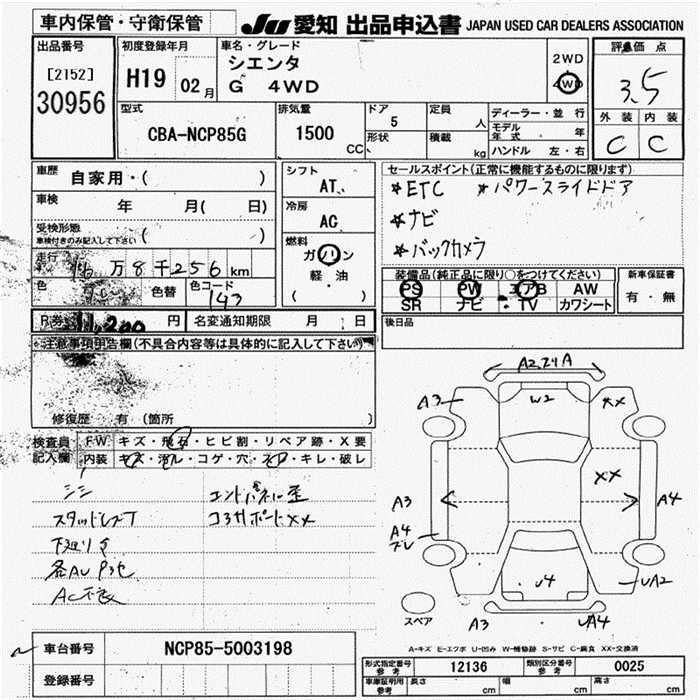 車内保管・守衛保管
JU 愛知 出品申込書 JAPAN USED CAR DEALERS ASSOCIATION
出品番号
[2152]
30956
初度登録年月
H19 02月
車名・グレード
シエンタ
G 4WD
2WD
4WD
評価点
3.5
外装 内装
C C
型式
CBA-NCP85G
排気量
1500 CC
ドア
5
形状
定員
人
積載
kg
ディーラー・並行
モデル年式 年
ハンドル 左・右
車歴
自家用・( )
車検
年 月( 日)
受検形態
車検付きのみ記入して下さい ( )
走行
万8千256km
色
色替
色コード
143
シフト
AT
冷房
AC
燃料
ガソリン
軽・油
( )
セールスポイント(正常に機能するものに限ります)
★ETC ★パワースライドドア
★ナビ
★バックカメラ
装備品(純正品に限り○をつけてください)
PS PW エアB AW
SR ナビ TV カワシート
新車保証書
有・無
R券 円
名変通知期限 月 日
後日品
注意事項申告欄(不具合内容等は具体的に記入して下さい)
修復歴 有(箇所
検査員記入欄
FW キズ・飛石・ヒビ割・リペア跡・X要
内装 キズ・汚レ・コゲ・穴・ネジ・キレ・破レ
シミ
エンドパネル歪
スタッドレスT
コアサポートXX
下廻りサ
AC不良
A3
W2
XX
XX
A3
A4
A4
ズレ
U4
UA2
A3
UA4
スペア
A-キズ E-エクボ U-凹み W-補修跡 S-サビ C-腐食 XX-交換済
車台番号
NCP85-5003198
登録番号
形式指定番号 参考
12136
類別区分番号 参考
0025
車庫証明用 参考
長さ cm
幅 cm
高さ cm